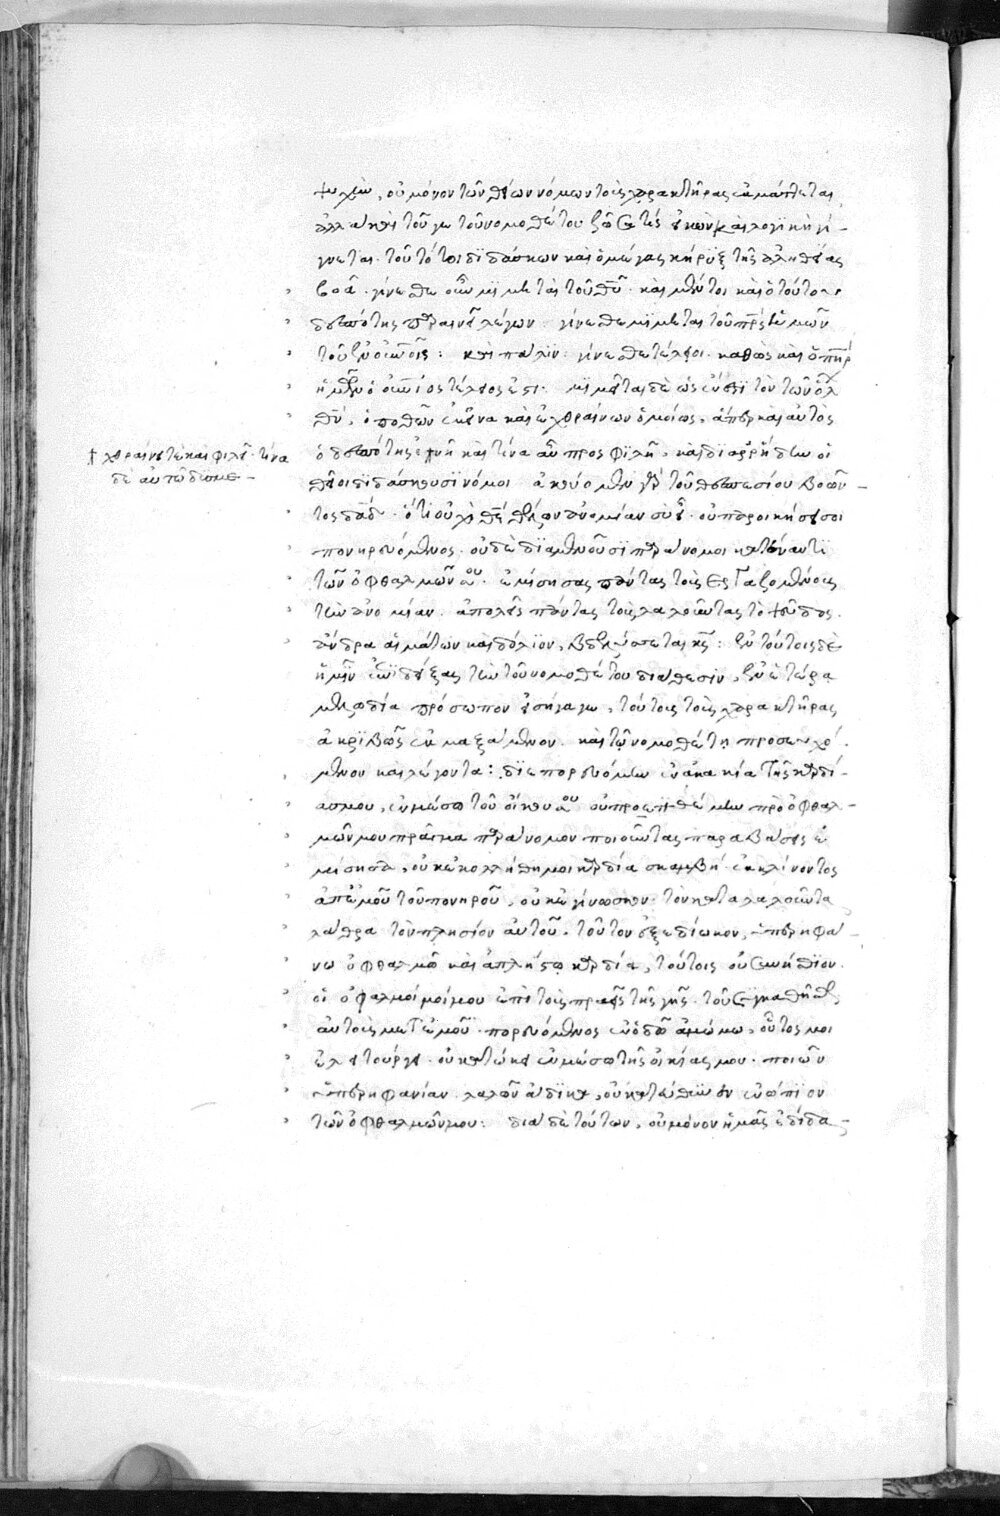 ψυχὴν, οὐ μόνον τῶν θείων νόμων τοὺς χαρακτῆρας ἐκμάττεται
ἀλλὰ καὶ τοῦ γε τοῦ νομοθέτου ζῶσά τις εἰκὼν καὶ λογικὴ γί-
γνεται. τοῦτό τοι διδάσκων καὶ ὁ μέγας κῆρυξ τῆς ἀληθείας
βοᾷ. γίνεσθε οὖν μϊμηταὶ τοῦ θυ. καὶ μέντοι καὶ ὁ τούτου
δεσπότης παραινεῖ λέγων. γίνεσθε μϊμηταὶ τοῦ πρς ὑμῶν
τοῦ ἐν οὐνοις: καὶ πάλϊν. γίνεσθε τέλειοι. καθὼς καὶ ὁ πηρ
ὑμῶν ὁ οὐνιος τέλειός ἐστι. μϊμεῖται δὲ ὡς ἔνεστϊ τὸν τῶν ὅλων
θν, ὁ ποθῶν ἐκεῖνα καὶ ἐχθραίνων ὁμοίως, ἅπερ καὶ αὐτὸς
ὁ δεσπότης καὶ τίνα αὖ προσφϊλῆ, καὶ διαρρήδην οἱ
θεῖοι διδάσκουσϊ νόμοι ἀκούομεν γὰρ τοῦ θεσπεσίου βοῶν-
τος δαδ. ὅτι οὐχὶ θς θέλων ἀνομίαν σὺ εἶ. οὐ παροικήσει σοι
πονηρευόμενος. οὐδὲ διαμενοῦσϊ παράνομοι κατέναντϊ
τῶν ὀφθαλμῶν σου. ἐμίσησας πάντας τοὺς ἐργαζομένους
τὴν ἀνομίαν. ἀπολεῖς πάντας τοὺς λαλοῦντας τὸ ψεῦδος.
ἄνδρα αἱμάτων καὶ δόλϊον, βδελύσσεται κς: ἐν τούτοις δὲ
ἡμῖν ἐπϊδείξας τὴν τοῦ νομοθέτου διάθεσϊν, ἐν ἑτέρᾳ
μελῳδίᾳ πρόσωπον εἰσήγαγε, τούτους τοὺς χαρακτῆρας
ἀκρϊβῶς ἐκμαξάμενον. καὶ τῷ νομοθέτῃ προσευχό-
μενον καὶ λέγοντα: διεπορευόμην ἐν ἀκακίᾳ τῆς καρδί-
ας μου, ἐν μέσῳ τοῦ οἴκου σου οὐ προεθέμην πρὸ ὀφθαλ-
μῶν μου πρᾶγμα παράνομον ποιοῦντας παραβάσεις ἐ-
μίσησα, οὐκ ἐκολλήθη μοι καρδία σκαμβὴ. ἐκκλίνοντος
ἀπ' ἐμοῦ τοῦ πονηροῦ, οὐκ ἐγίνωσκον. τὸν καταλαλοῦντα
λάθρα τὸν πλησίον αὐτοῦ. τοῦτον ἐξεδίωκον, ὑπερηφά-
νω ὀφθαλμῷ καὶ ἀπλήστῳ καρδίᾳ, τούτοις οὐ συνήσθϊον.
οἱ ὀφαλμοί μοί μου ἐπὶ τοὺς πραεῖς τῆς γῆς. τοῦ συγκαθῆσθαι
αὐτοὺς μετ' ἐμοῦ. πορευόμενος ἐν ὁδῷ ἀμώμῳ, οὗτός μοι
ἐλειτούργει. οὐ κατῴκει ἐν μέσῳ τῆς οἰκίας μου. ποιῶν
ὑπερηφανίαν. λαλῶν ἄδϊκα, οὐ κατεύθϋνεν ἐνώπϊον
τῶν ὀφθαλμῶν μου: διὰ δὲ τούτων, οὐ μόνον ἡμᾶς ἐδίδα-